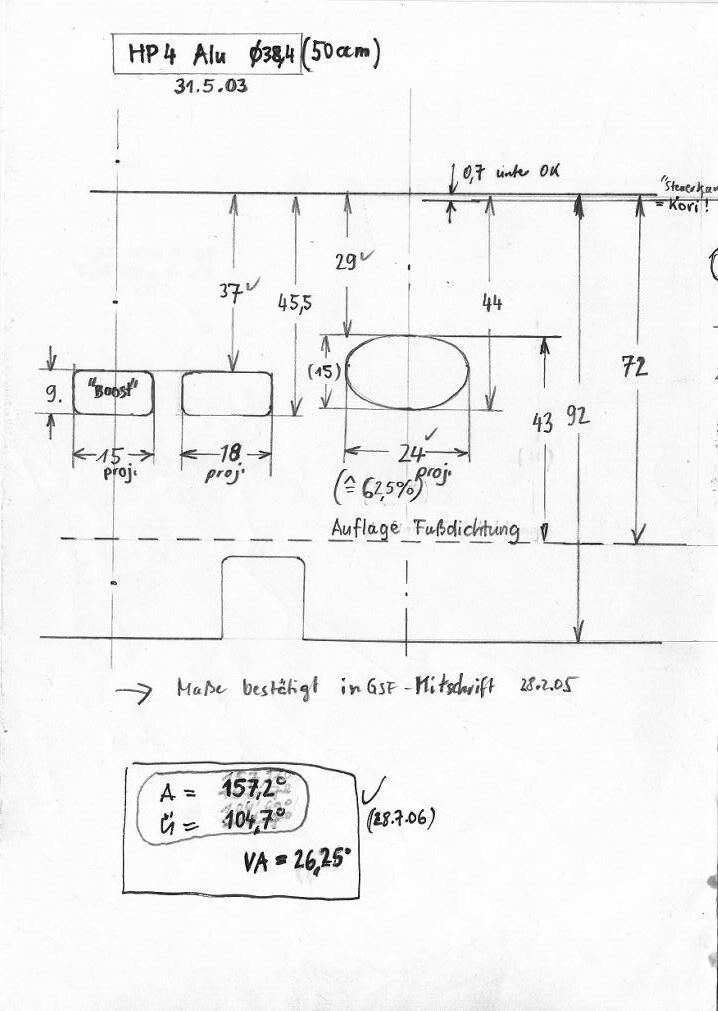 HP4 Alu Ø38,4 (50ccm)
31.5.03
0,7 unter OK
"Steuerkan
= Kori!
29
37
45,5
44
72
(15)
9.
"Boost"
43
92
15
proj.
18
proj.
24
proj.
(≙ 62,5%)
Auflage Fußdichtung
→ Maße bestätigt in GSF-Mitschrift 28.2.05
A = 157,2°
Ü = 104,7°
(28.7.06)
VA = 26,25°